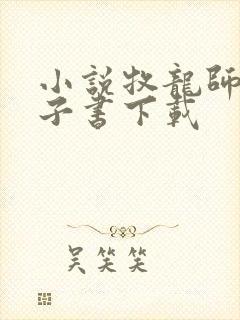 小說牧龍師
子書下載
吴笑笑